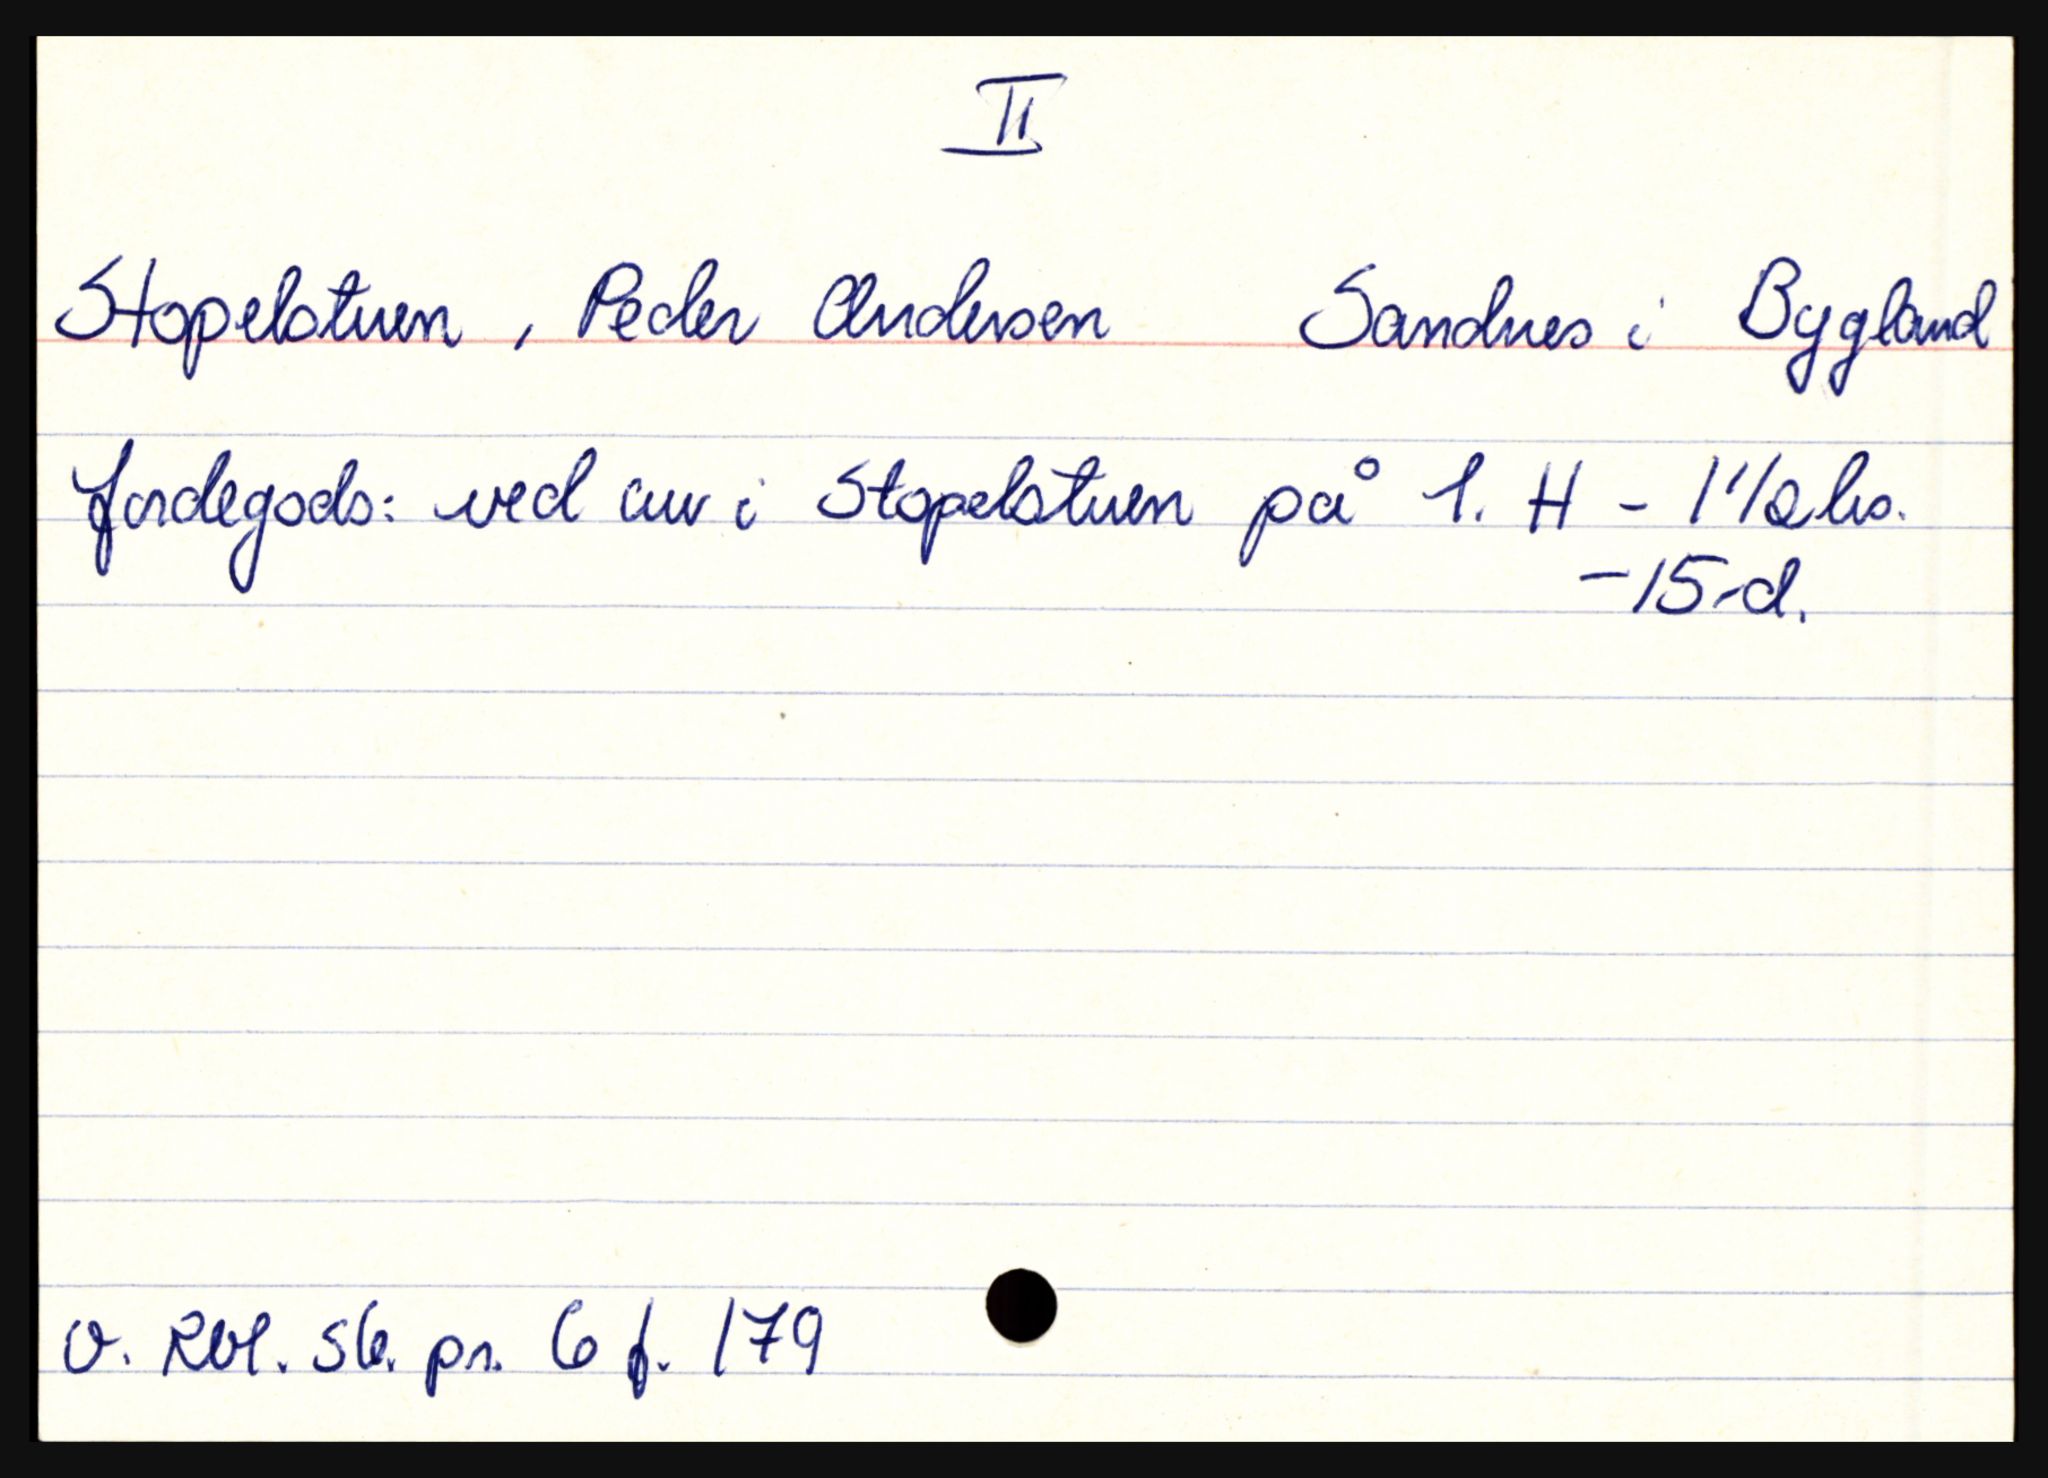 II
Stopelstuen, Peder Andersen Sandnes i Bygland
jordegods: ved arv i Stopelstuen på 1. H - 1 1/2 hs.
-15-d.
v. Rbl. Sk. pr. 6 f. 179